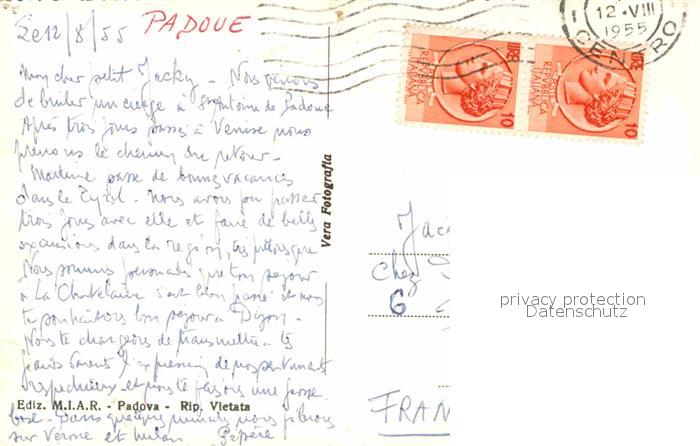 Le 12/8/55 PADOUE
12·VIII
1955
CENTRO
LIRE
REPUBBLICA
ITALIANA
10
LIRE
REPUBBLICA
ITALIANA
10
Mon cher petit Jacky - Nous venons
de bruler un cierge à St Antoine de Padoue
Après trois jours passés à Venise nous
prenons le chemin du retour.
Martine passe de bonnes vacances
dans le Tyrol. Nous avons pu passer
trois jours avec elle et faire de belles
excursions dans la région, très pittoresque
Nous sommes persuadés que ton séjour
à La Chatelaine s'est bien passé et nous
te souhaitons bon séjour à Dijon.
Nous te chargeons de transmettre à tes
grands parents l'expression de nos sentiments
respectueux et nous te faisons une grosse
bise. Dans quelques minutes nous filerons
sur Vérone et Milan Pépère
Vera Fotografia
Ediz. M.I.A.R. - Padova - Rip. Vietata
Jac
Chez
6
FRAN
privacy protection
Datenschutz